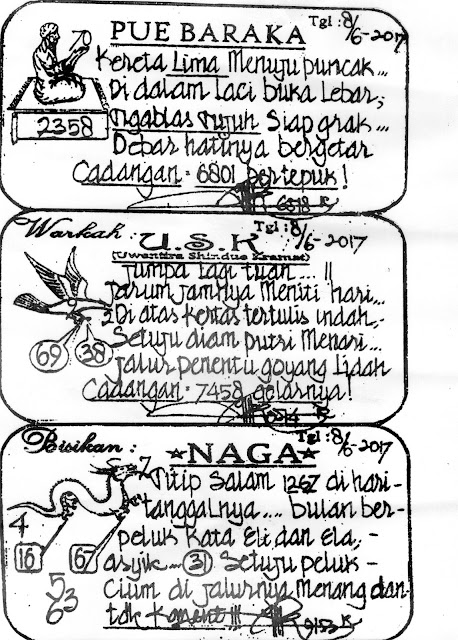 PUE BARAKA
Tgl : 8/6-2017
70
2358
Kereta Lima Menuju puncak...
Di dalam laci buka Lebar,
Ngablas Tujuh Siap grak...
Debar hatinya bergetar
Cadangan = 6801 bertepuk!
6518 K
Warkah :
U.S.K
Tgl : 8/6-2017
(Uwentira Shindue Kramat)
Jumpa lagi tuan... !!
Jarum jamnya Meniti hari...
2 Di atas kertas tertulis indah,-
69 38
Setuju diam putri Menari...
jalur penentu goyang Lidah
Cadangan = 7458 gelarnya!
Bisikan :
NAGA
Tgl : 8/6-2017
7
Titip Salam 1267 di hari-
tanggalnya.... bulan ber-
4
peluk kata Eli dan Ela,-
16 67
asyik... 31 Setuju peluk-
5
63
Cium di jalurnya Menang dan-
tdk Koment !!!
9153 K